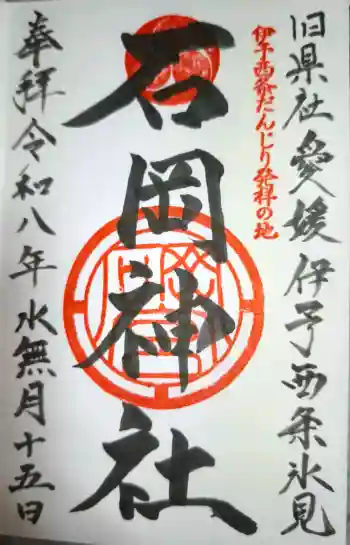 旧県社愛媛伊予西条氷見
伊予西条だんじり発祥の地
石岡神社
奉拝令和八年水無月十五日